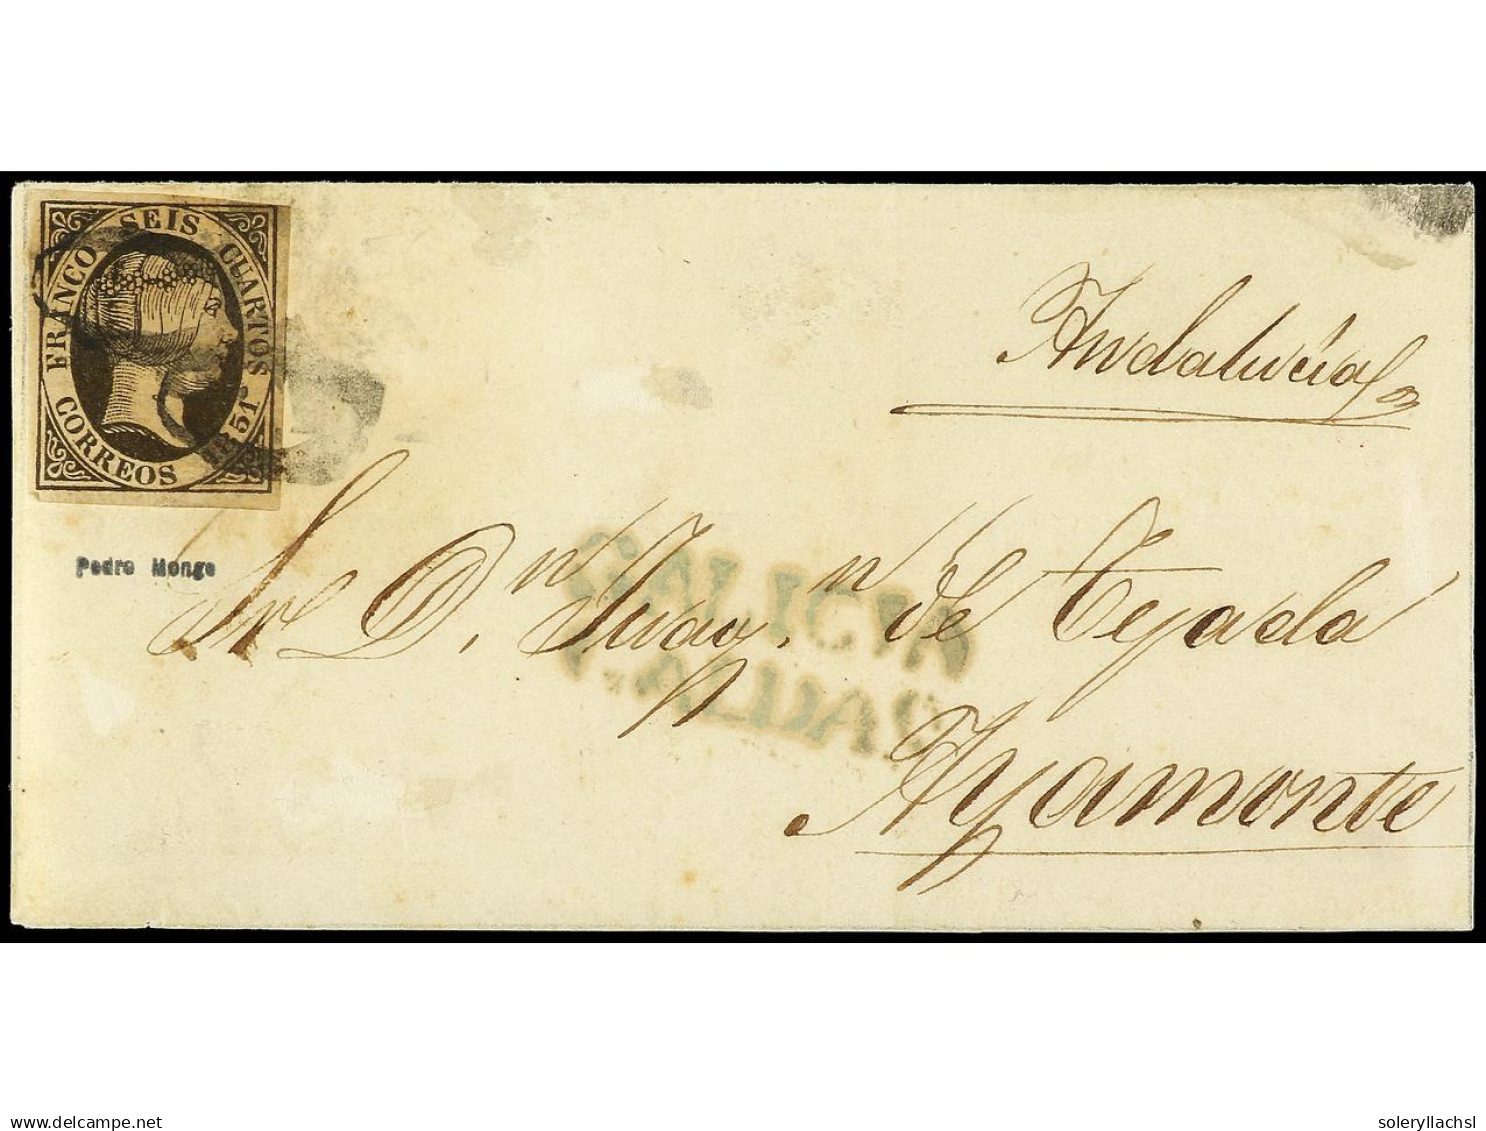 FRANCO SEIS CUARTOS
CORREOS 1851
Andalucia
Pedro Monge
Sr D.n Juan de Tejada
Ayamonte
delcampe.net
soleryllachsl